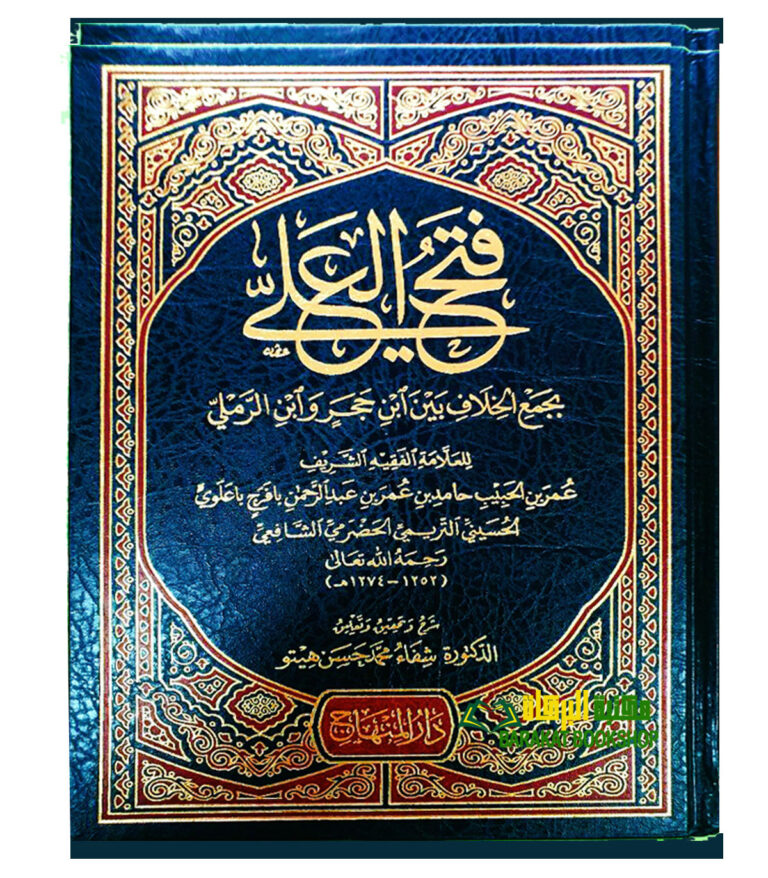 فتح العلي
بجمع الخلاف بين ابن حجر وابن الرملي
للعلامة الفقيه الشريف
عمر بن الحبيب حامد بن عمر بن عبد الرحمن بافرج باعلوي
الحسيني التريمي الحضرمي الشافعي
رحمه الله تعالى
(١٢٥٢ - ١٢٧٤هـ)
شرح وتحقيق وتعليق
الدكتورة شفاء محمد حسن هيتو
دار المنهاج
BARAKAT BOOKSHOP